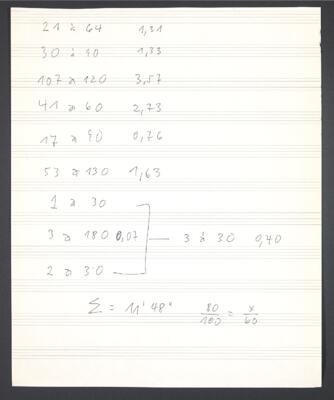 21 à 64 1,31
30 à 90 1,33
107 à 120 3,57
41 à 60 2,73
17 à 90 0,76
53 à 130 1,63
1 à 30
3 à 180 0,07 3 à 30 0,40
2 à 30
Σ = 11' 48" 80/100 = x/60